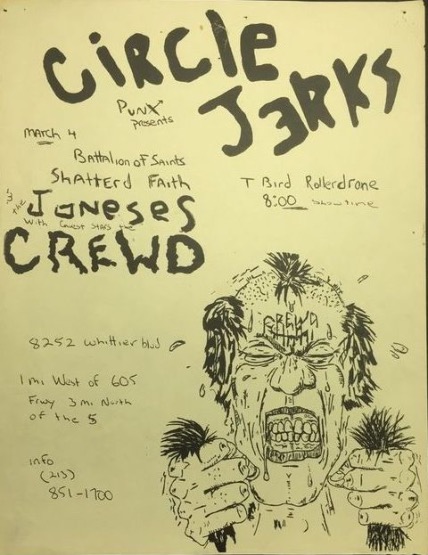 CIRCLE
JERKS
PUNX
presents
MARCH 4
Battalion of Saints
Shatterd Faith
the
JONESES
With Guest Stars the
CREWD
T Bird Rollerdrone
8:00 showtime
CREWD
8252 whittier blvd
1 mi West of 605
Frwy 3 mi North
of the 5
info
(213)
851-1700